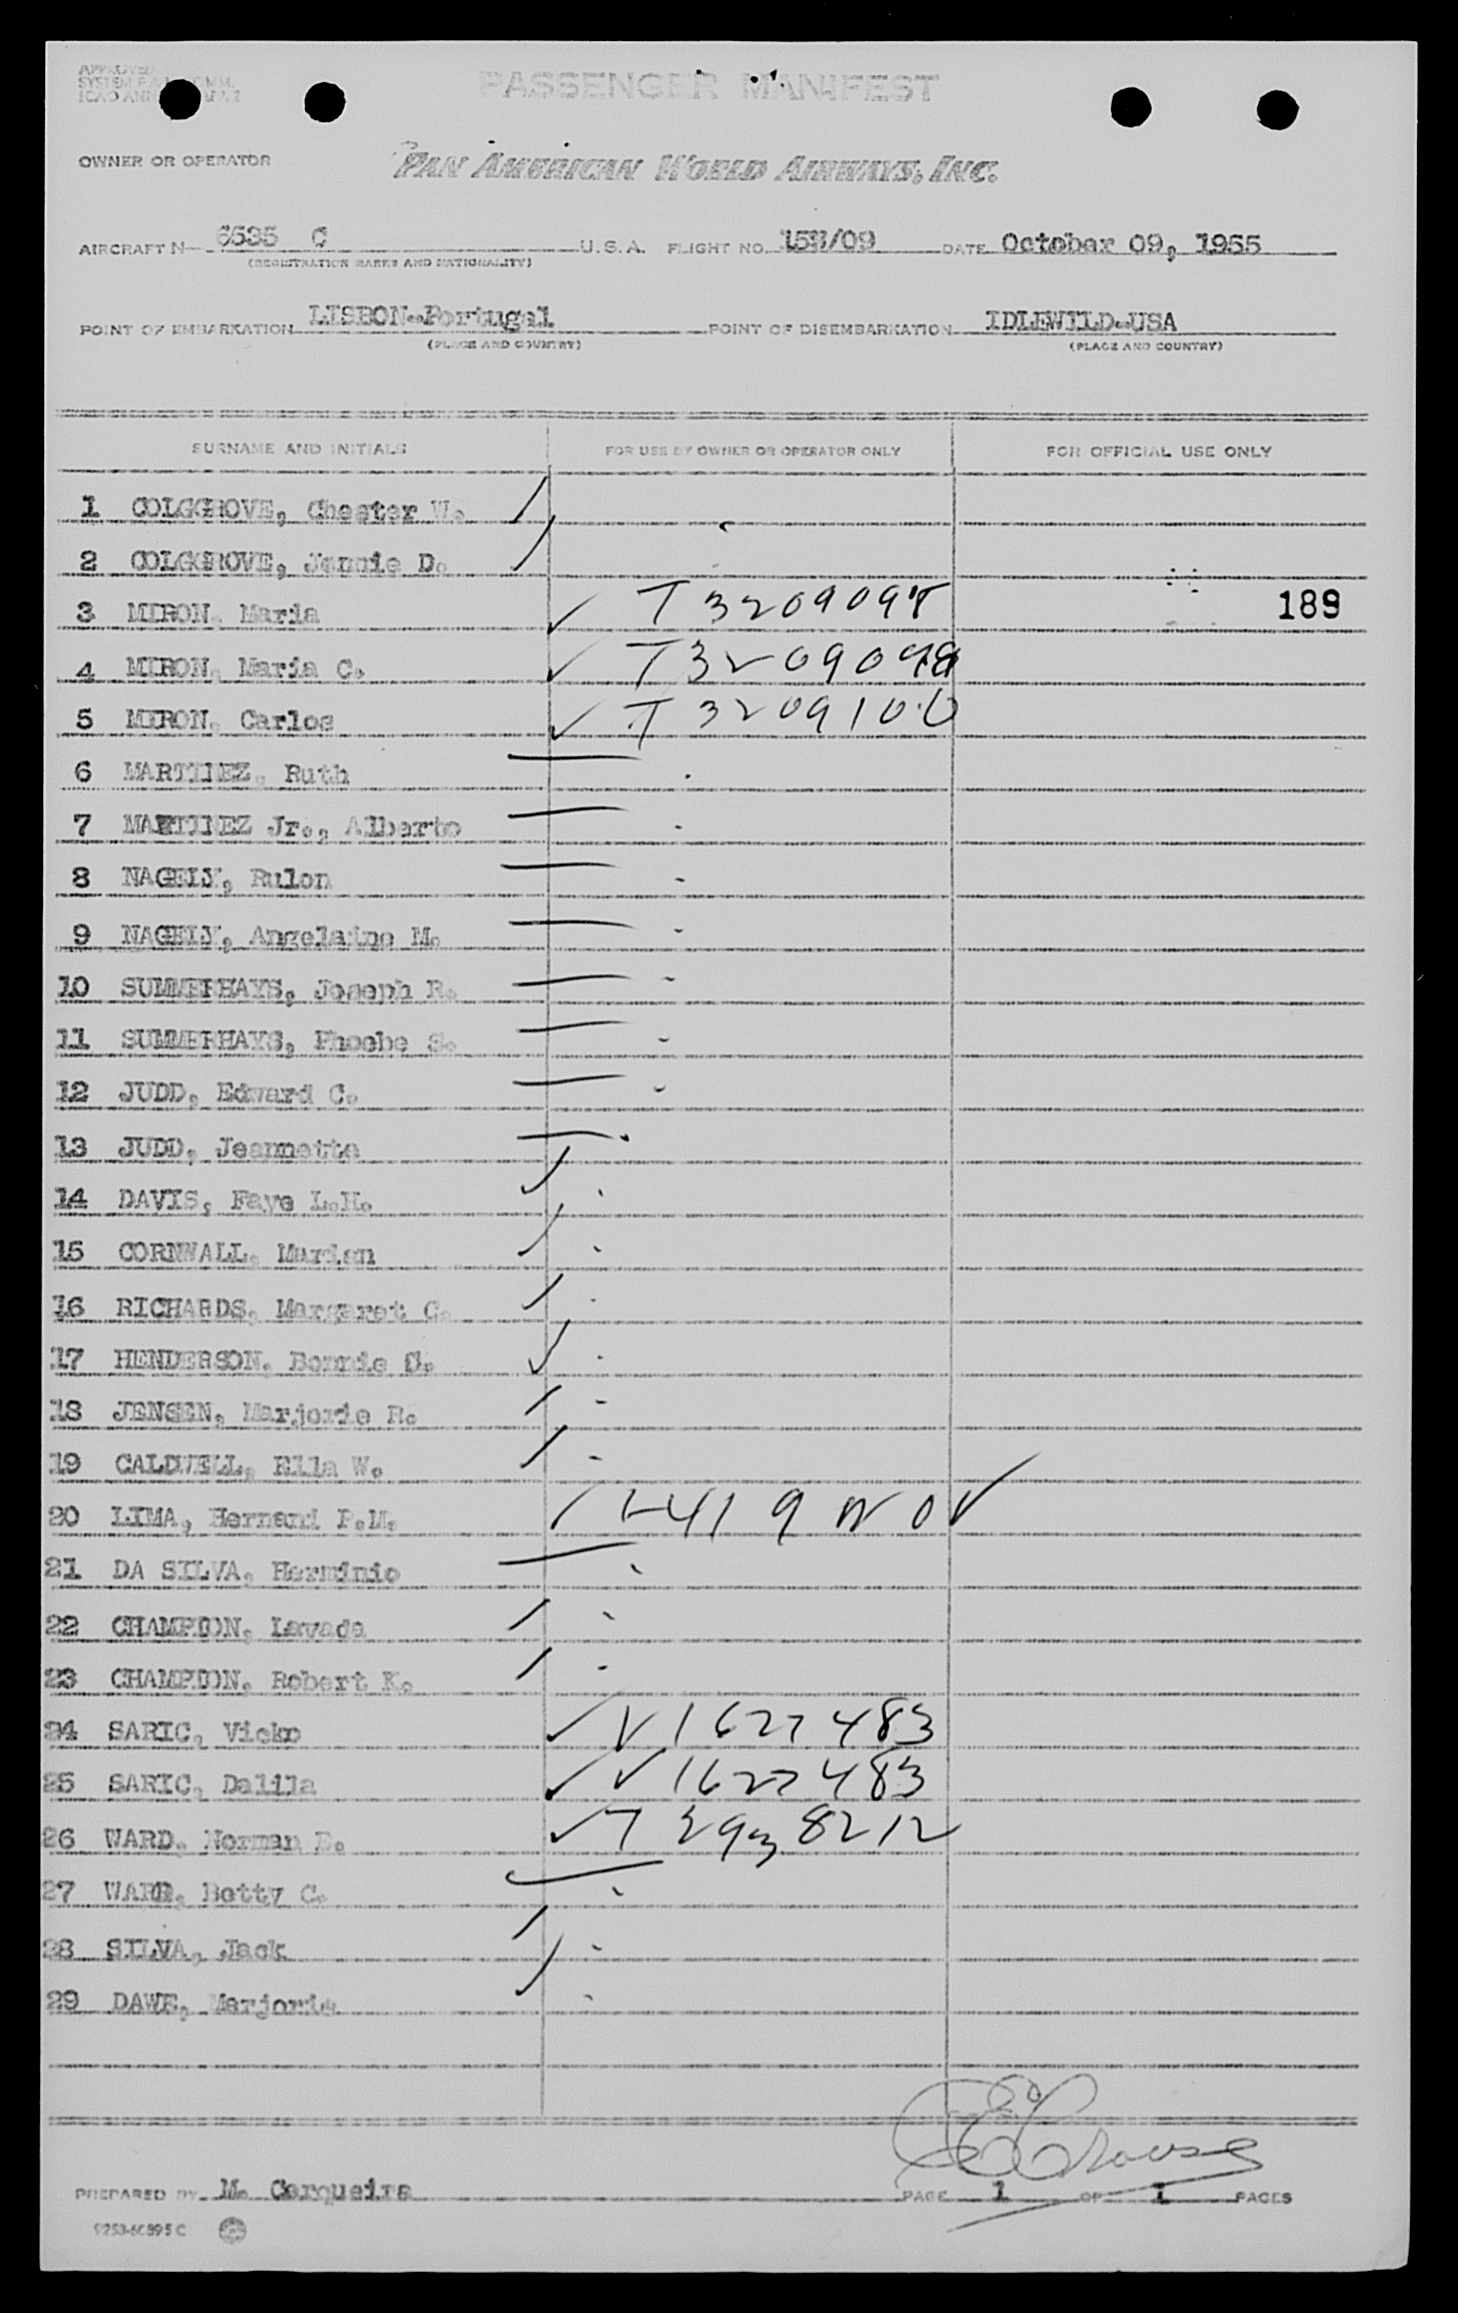 PASSENGER MANIFEST
OWNER OR OPERATOR PAN AMERICAN WORLD AIRWAYS, INC.
AIRCRAFT N— 6535 C U.S.A. FLIGHT NO. /09 DATE October 09, 1955
(REGISTRATION MARKS AND NATIONALITY)
POINT OF EMBARKATION LISBON-Portugal POINT OF DISEMBARKATION IDLEWILD-USA
(PLACE AND COUNTRY) (PLACE AND COUNTRY)
SURNAME AND INITIALS FOR USE BY OWNER OR OPERATOR ONLY FOR OFFICIAL USE ONLY
1 COLGROVE, Chester W.
2 COLGROVE, Jennie D.
3 MIRON, Maria T3209098 189
4 MIRON, Maria C. T3209099
5 MIRON, Carlos T3209100
6 MARTINEZ, Ruth
7 MARTINEZ Jr., Alberto
8 NAGELY, Rulon
9 NAGELY, Angelaine M.
10 SUMMERHAYS, Joseph R.
11 SUMMERHAYS, Phoebe S.
12 JUDD, Edward C.
13 JUDD, Jeannette
14 DAVIS, Faye L.H.
15 CORNWALL, Marian
16 RICHARDS, Margaret C.
17 HENDERSON, Bonnie S.
18 JENSEN, Marjorie R.
19 CALDWELL, Ella W.
20 LIMA, Hernani P.M.
21 DA SILVA, Herminio
22 CHAMPION, Lavada
23 CHAMPION, Robert K.
24 SARIC, Vicko V1627483
25 SARIC, Dalila V1627483
26 WARD, Norman E. T2938212
27 WARD, Betty C.
28 SILVA, Jack
29 DAWE, Marjorie
PREPARED BY M. Cerqueira PAGE 1 OF 1 PAGES